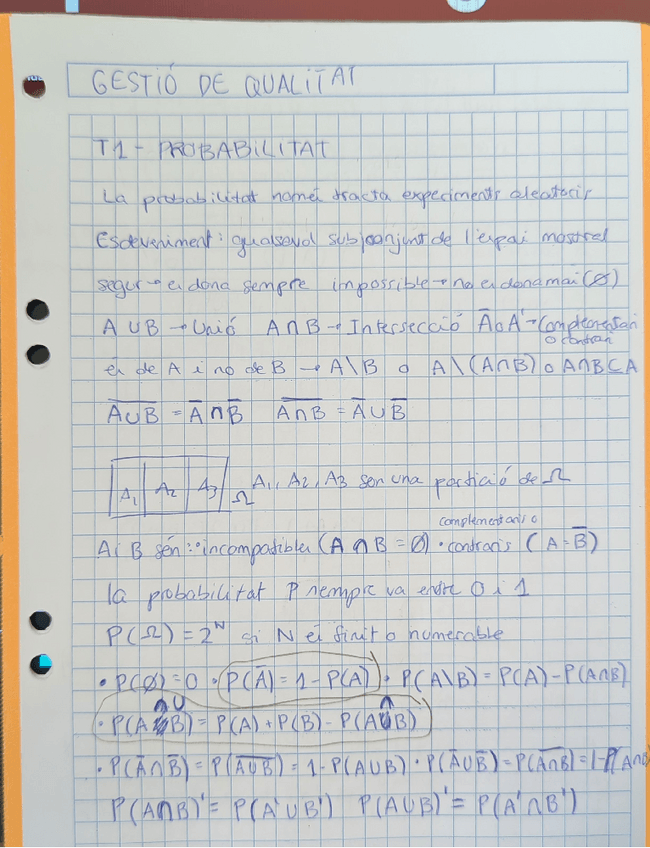 GESTIÓ DE QUALITAT
T1 - PROBABILITAT
La probabilitat només tracta experiments aleatoris
Esdeveniment: qualsevol subjconjunt de l'espai mostral
segur → es dona sempre impossible → no es dona mai (∅)
A ∪ B → Unió A ∩ B → Intersecció Ā o A' → Complementari
o contrari
és de A i no de B → A\B o A\(A∩B) o A∩B⊂A
\overline{A∪B} = Ā ∩ B̄ \overline{A∩B} = Ā ∪ B̄
A₁ A₂ A₃ Ω A₁, A₂, A₃ són una partició de Ω
complementaris o
A i B són: · incompatibles (A ∩ B = ∅) · contraris (A = B̄)
la probabilitat P sempre va entre 0 i 1
P(Ω) = 2ᴺ si N és finit o numerable
· P(∅) = 0 · P(Ā) = 1 - P(A) · P(A\B) = P(A) - P(A∩B)
· P(A∪B) = P(A) + P(B) - P(A∩B)
· P(Ā∩B̄) = P(\overline{A∪B}) = 1 - P(A∪B) · P(Ā∪B̄) = P(\overline{A∩B}) = 1 - P(A∩B
P(A∩B)' = P(A'∪B') P(A∪B)' = P(A'∩B')